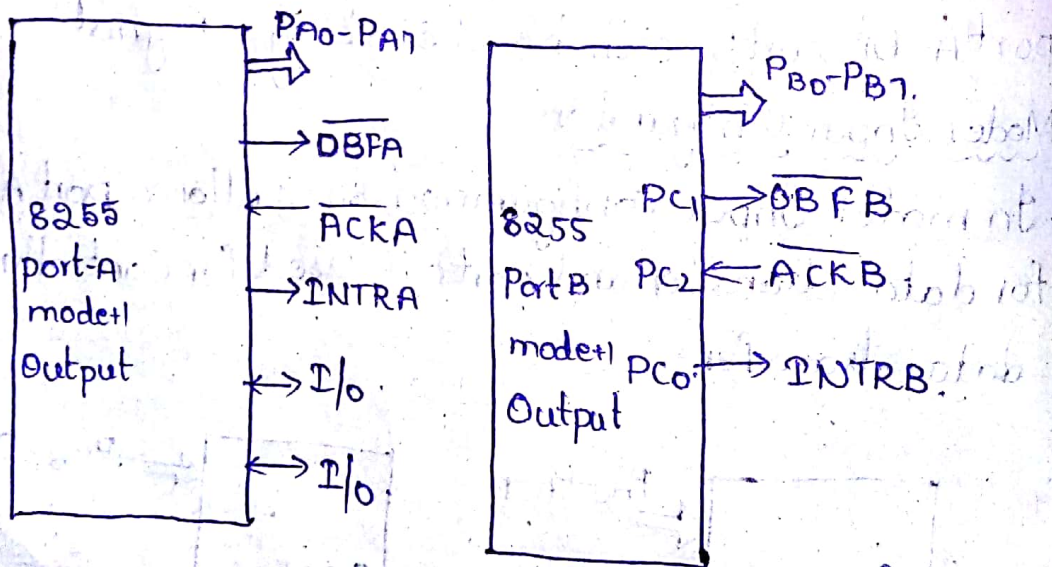 PA0-PA7
OBFA
ACKA
INTRA
I/O.
I/O.
8255
port-A
mode+1
Output
PB0-PB7.
PC1 OBFB
PC2 ACKB
PC0 INTRB.
8255
Port B
mode+1
Output